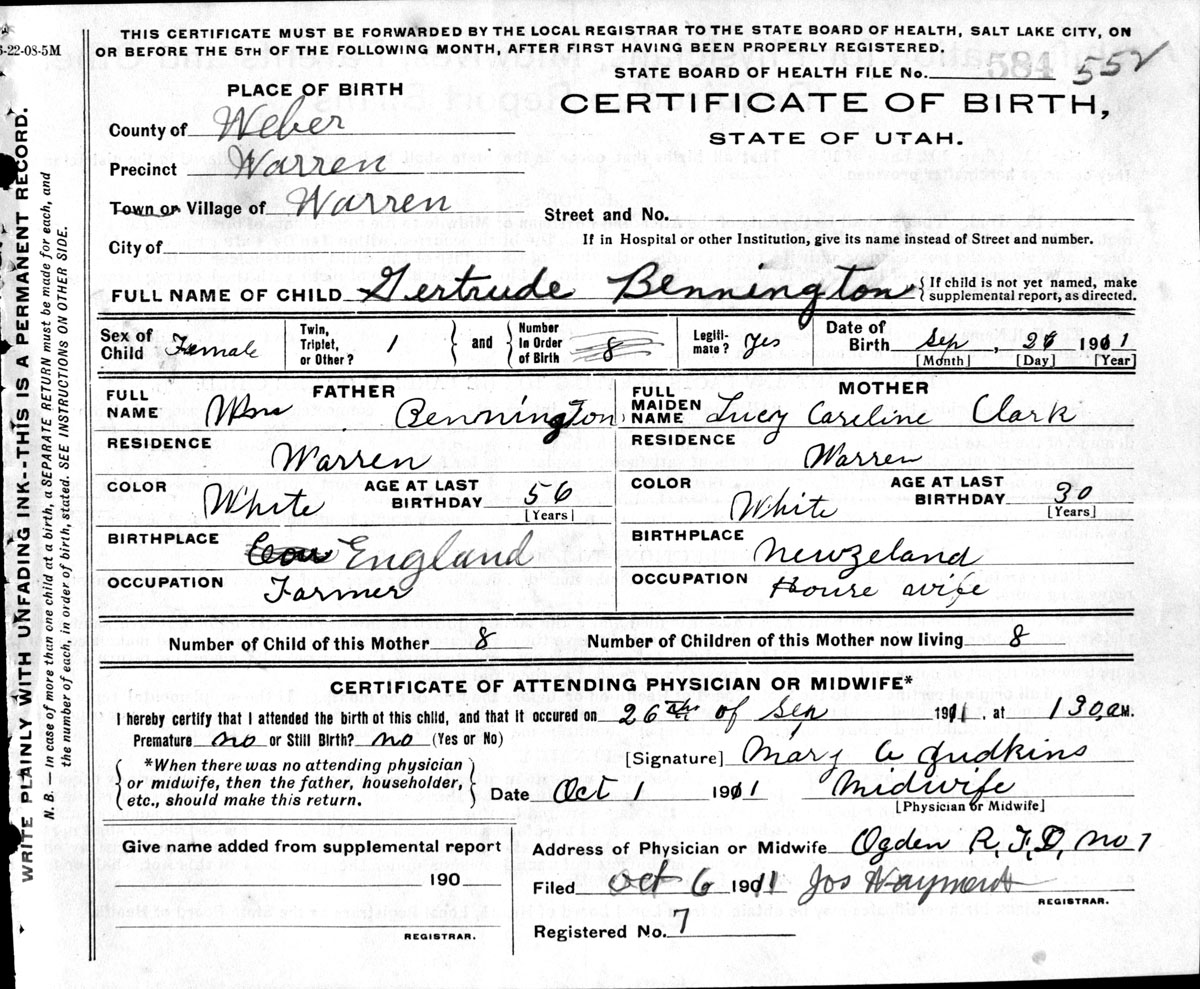 6-22-08-5M
THIS CERTIFICATE MUST BE FORWARDED BY THE LOCAL REGISTRAR TO THE STATE BOARD OF HEALTH, SALT LAKE CITY, ON
OR BEFORE THE 5TH OF THE FOLLOWING MONTH, AFTER FIRST HAVING BEEN PROPERLY REGISTERED.
STATE BOARD OF HEALTH FILE No. 584 552
PLACE OF BIRTH
CERTIFICATE OF BIRTH,
STATE OF UTAH.
County of Weber
Precinct Warren
Town or Village of Warren
Street and No.
City of
If in Hospital or other Institution, give its name instead of Street and number.
FULL NAME OF CHILD Gertrude Bennington { If child is not yet named, make supplemental report, as directed.
Sex of Child Female
Twin, Triplet, or Other? 1 } and { Number in Order of Birth 8
Legiti-mate? yes
Date of Birth Sep, 26 1911
[Month] [Day] [Year]
FATHER
FULL NAME Wm Bennington
RESIDENCE Warren
COLOR White AGE AT LAST BIRTHDAY 56
[Years]
BIRTHPLACE England
OCCUPATION Farmer
MOTHER
FULL MAIDEN NAME Lucy Careline Clark
RESIDENCE Warren
COLOR White AGE AT LAST BIRTHDAY 30
[Years]
BIRTHPLACE Newzeland
OCCUPATION House wife
Number of Child of this Mother 8 Number of Children of this Mother now living 8
CERTIFICATE OF ATTENDING PHYSICIAN OR MIDWIFE*
I hereby certify that I attended the birth of this child, and that it occured on 26th of Sep 1911, at 1 30, A M.
Premature no or Still Birth? no (Yes or No)
[Signature] Mary A Judkins
{ *When there was no attending physician
or midwife, then the father, householder,
etc., should make this return. }
Date Oct 1 1911 Midwife
[Physician or Midwife]
Give name added from supplemental report
190
REGISTRAR.
Address of Physician or Midwife Ogden R, F, D, no 1
Filed Oct 6 1911 Jos
REGISTRAR.
Registered No. 7
WRITE PLAINLY WITH UNFADING INK--THIS IS A PERMANENT RECORD.
N. B. — In case of more than one child at a birth, a SEPARATE RETURN must be made for each, and
the number of each, in order of birth, stated. SEE INSTRUCTIONS ON OTHER SIDE.